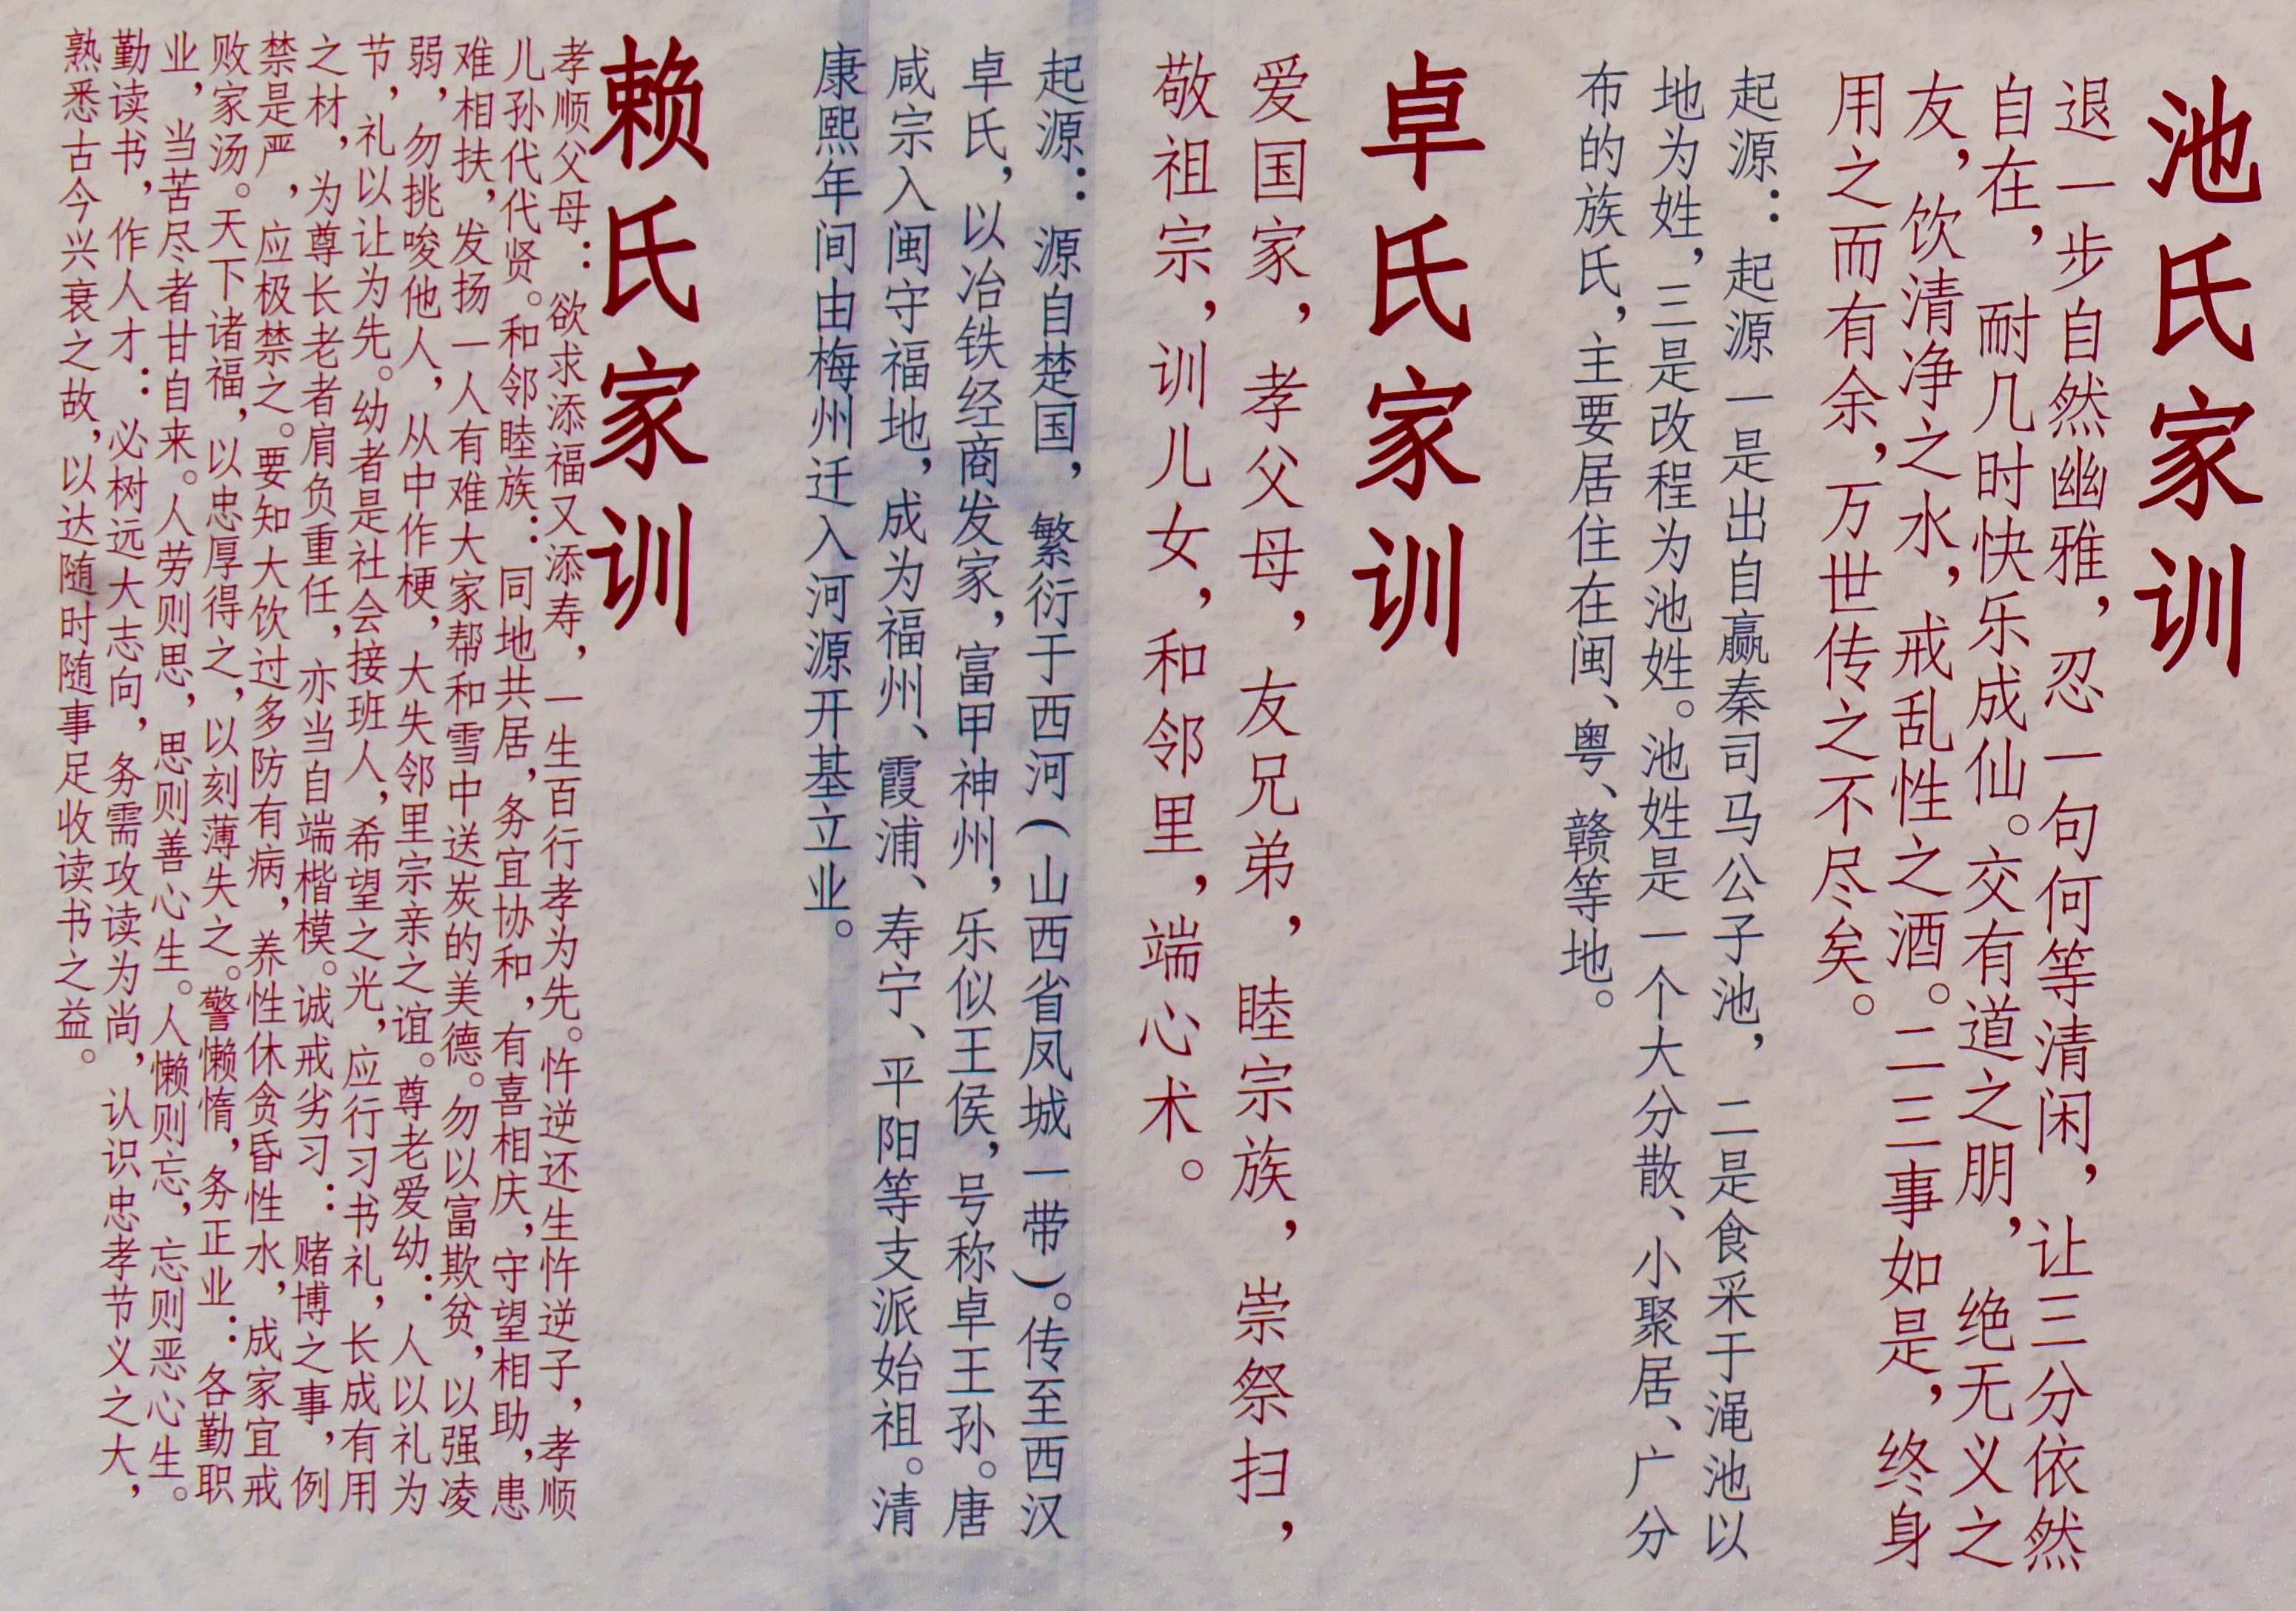 池氏家训
退一步自然幽雅，忍一句何等清闲，让三分依然
自在，耐几时快乐成仙。交有道之朋，绝无义之
友，饮清净之水，戒乱性之酒。二三事如是，终身
用之而有余，万世传之不尽矣。
起源：起源一是出自嬴秦司马公子池，二是食采于渑池以
地为姓，三是改程为池姓。池姓是一个大分散、小聚居、广分
布的族氏，主要居住在闽、粤、赣等地。
卓氏家训
爱国家，孝父母，友兄弟，睦宗族，崇祭扫，
敬祖宗，训儿女，和邻里，端心术。
起源：源自楚国，繁衍于西河（山西省凤城一带）。传至西汉
卓氏，以冶铁经商发家，富甲神州，乐似王侯，号称卓王孙。唐
咸宗入闽守福地，成为福州、霞浦、寿宁、平阳等支派始祖。清
康熙年间由梅州迁入河源开基立业。
赖氏家训
孝顺父母：欲求添福又添寿，一生百行孝为先。忤逆还生忤逆子，孝顺
儿孙代代贤。和邻睦族：同地共居，务宜协和，有喜相庆，守望相助，患
难相扶，发扬一人有难大家帮和雪中送炭的美德。勿以富欺贫，以强凌
弱，勿挑唆他人，从中作梗，大失邻里宗亲之谊。尊老爱幼：人以礼为
节，礼以让为先。幼者是社会接班人，希望之光，应行习书礼，长成有用
之材，为尊长老者肩负重任，亦当自端楷模。诚戒劣习：赌博之事，例
禁是严，应极禁之。要知大饮过多防有病，养性休贪昏性水，成家宜戒
败家汤。天下诸福，以忠厚得之，以刻薄失之。警懒惰，务正业：各勤职
业，当苦尽者甘自来。人劳则思，思则善心生。人懒则忘，忘则恶心生。
勤读书，作人才：必树远大志向，务需攻读为尚，认识忠孝节义之大，
熟悉古今兴衰之故，以达随时随事足收读书之益。